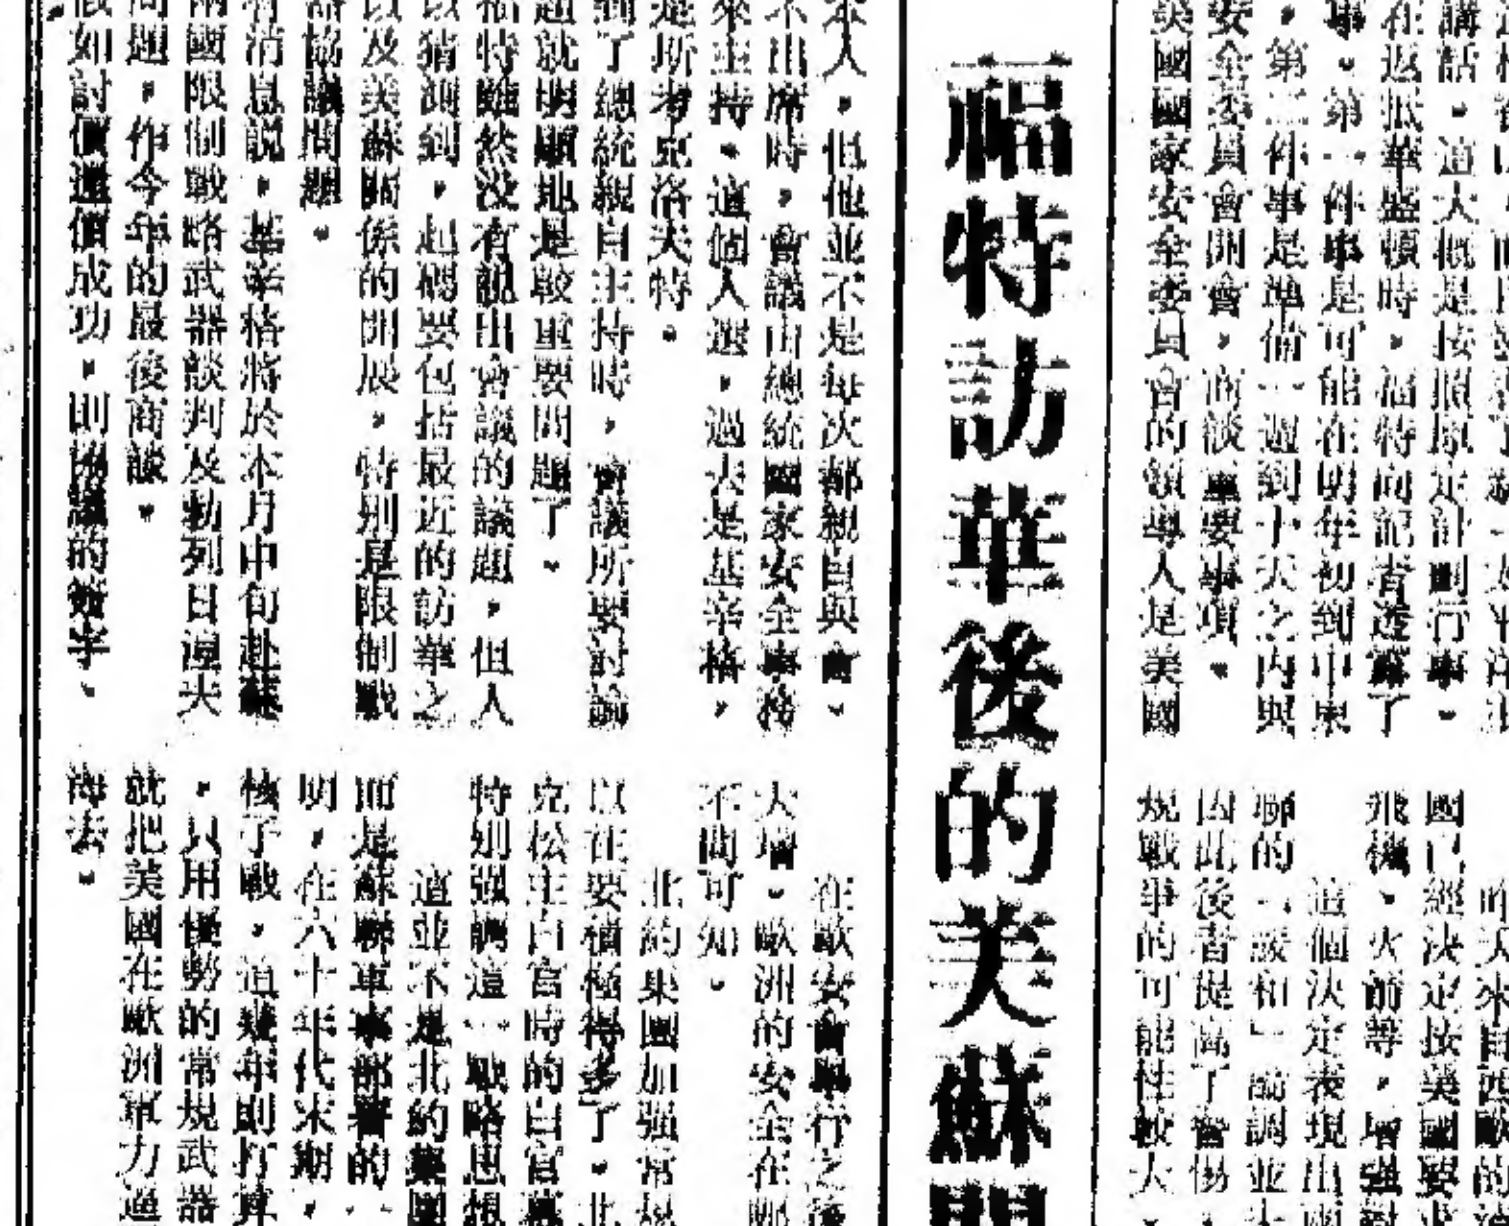 講話。這大概是按照原定計劃行事。
在返抵華盛頓時,福特向記者透露了
事。第一件事是可能在明年初到中東
,第二件事是準備一週到十天之內與
安全委員會開會,商談重要事項。
美國國家安全委員會的領導人是美國
昨天來自西歐的
國已經決定按美國要求
飛機、火箭等,增強對
這個決定表現出
聯的「緩和」論調並
因此後者提高了警惕
規戰爭的可能性較大。
福特訪華後的美蘇關
本人,但他並不是每次都親自與會。
不出席時,會議由總統國家安全事務
來主持。這個人選,過去是基辛格,
是斯考克洛夫特。
到了總統親自主持時,會議所要討論
題就明顯地是較重要問題了。
福特雖然沒有說出會議的議題,但人
以猜測到,起碼要包括最近的訪華之
以及美蘇關係的開展,特別是限制戰
器協議問題。
有消息說,基辛格將於本月中旬赴蘇
兩國限制戰略武器談判及勃列日湼夫
問題,作今年的最後商談。
假如討價還價成功,則協議的簽字、
在歐安會舉行之後
大增。歐洲的安全在那
不問可知。
北約集團加强常規
以在要積極得多了。北
克松主白宮時的白宮
特別强調這一戰略思想
這並不是北約集團
而是蘇聯軍事部署的
明,在六十年代末期,
核子戰。這幾年則打算
,只用優勢的常規武器
就把美國在歐洲軍力逼
海去。